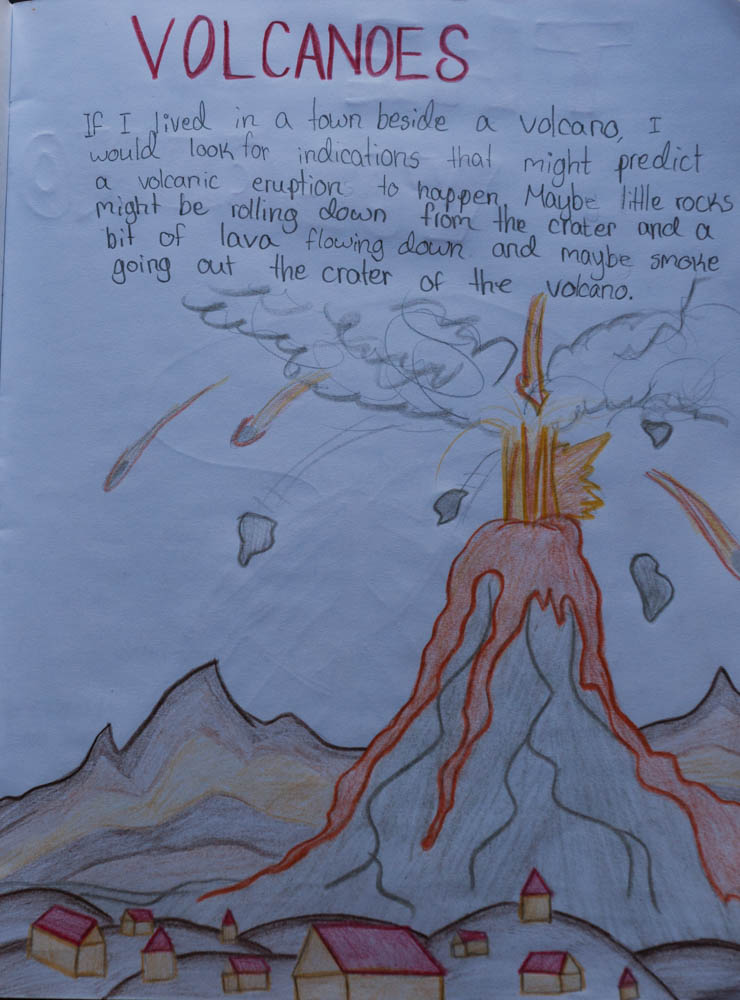 VOLCANOES
If I lived in a town beside a volcano, I
would look for indications that might predict
a volcanic eruption to happen. Maybe little rocks
might be rolling down from the crater and a
bit of lava flowing down and maybe smoke
going out the crater of the volcano.